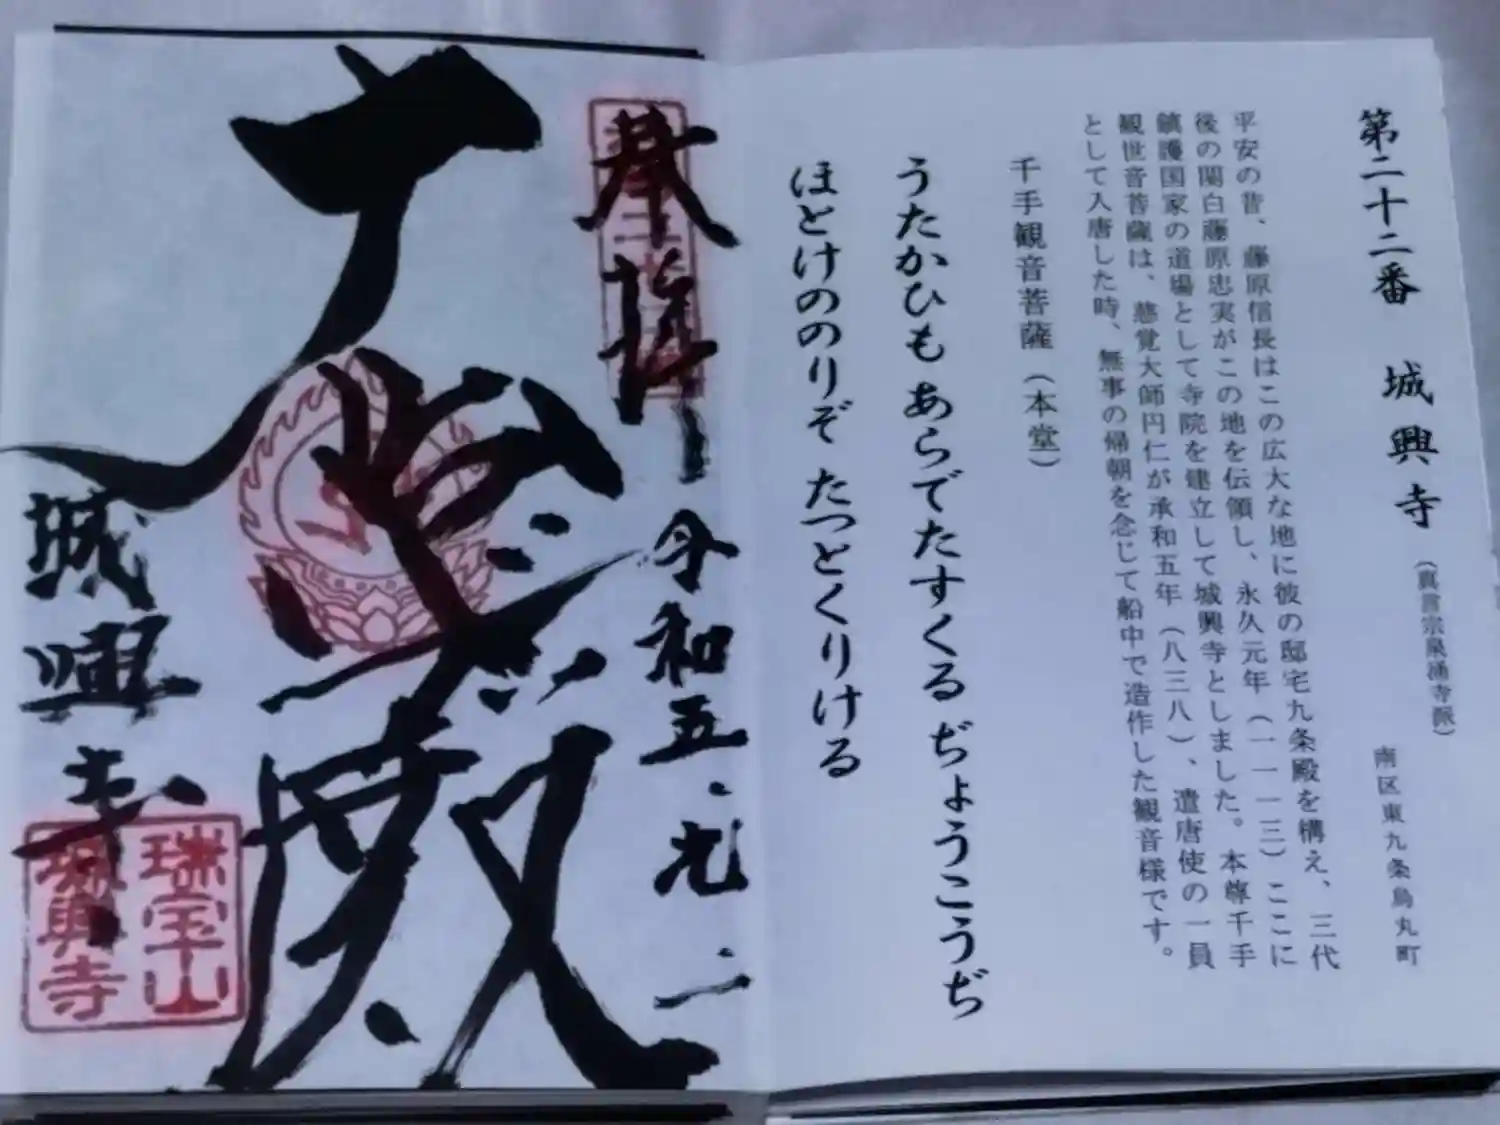 第二十二番 城興寺（真言宗泉涌寺派）
南区東九条烏丸町
平安の昔、藤原信長はこの広大な地に彼の邸宅九条殿を構え、三代
後の関白藤原忠実がこの地を伝領し、永久元年（一一一三）ここに
鎮護国家の道場として寺院を建立して城興寺としました。本尊千手
観世音菩薩は、慈覚大師円仁が承和五年（八三八）、遣唐使の一員
として入唐した時、無事の帰朝を念じて船中で造作した観音様です。
千手観音菩薩（本堂）
うたかひも あらでたすくる ぢょうこうぢ
ほとけののりぞ たつとくりける
奉拝
令和五.元.一
大悲殿
城興寺
瑞宝山
城興寺